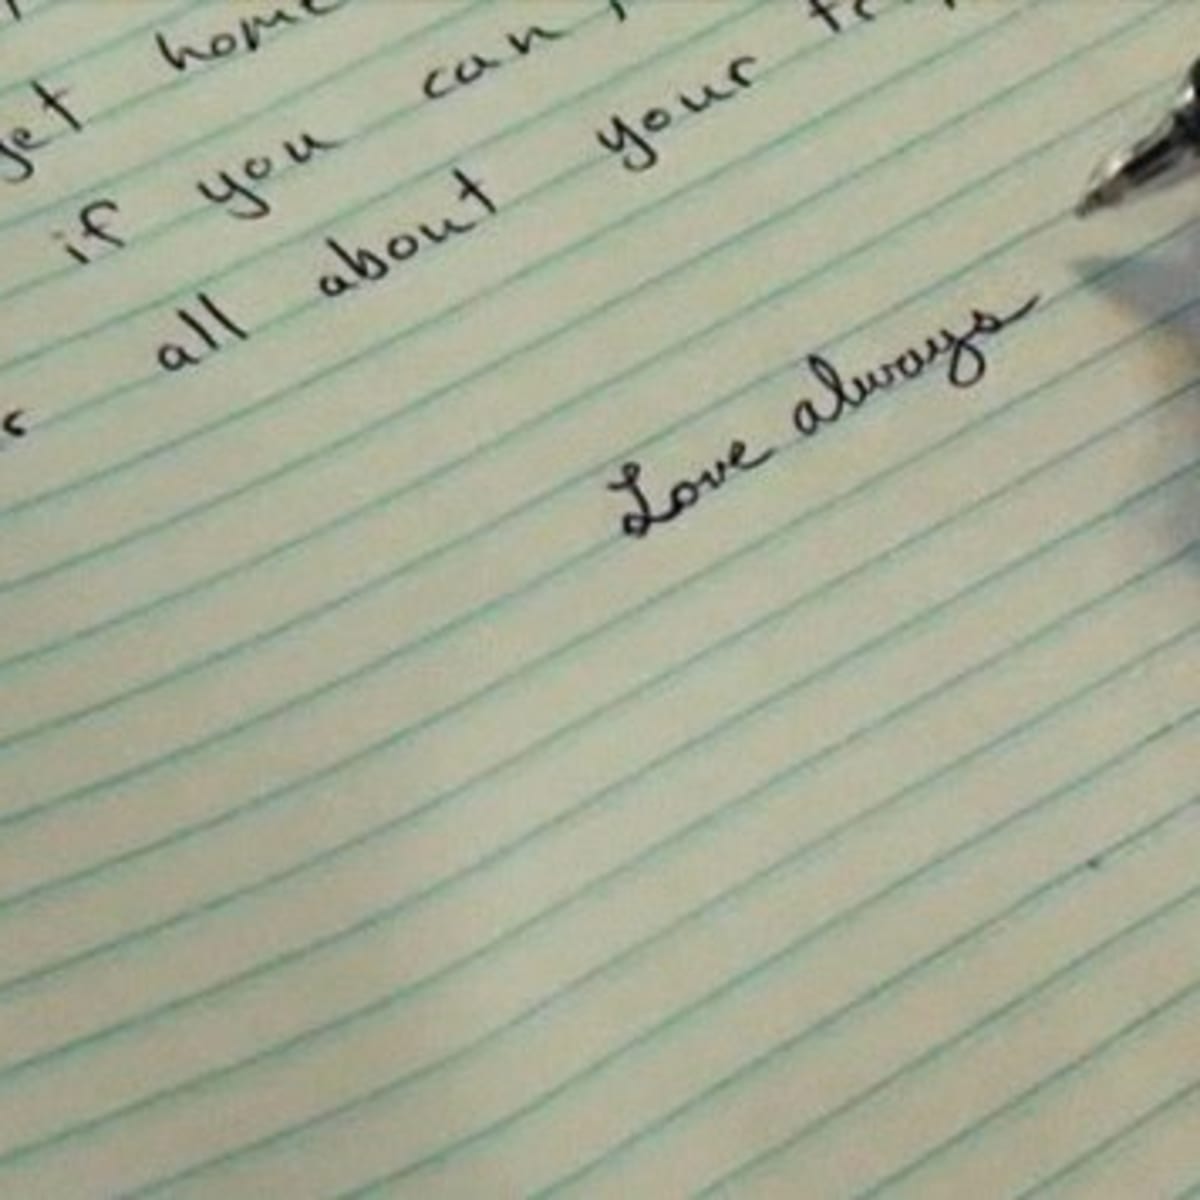 get home
if you can
all about your
Love always